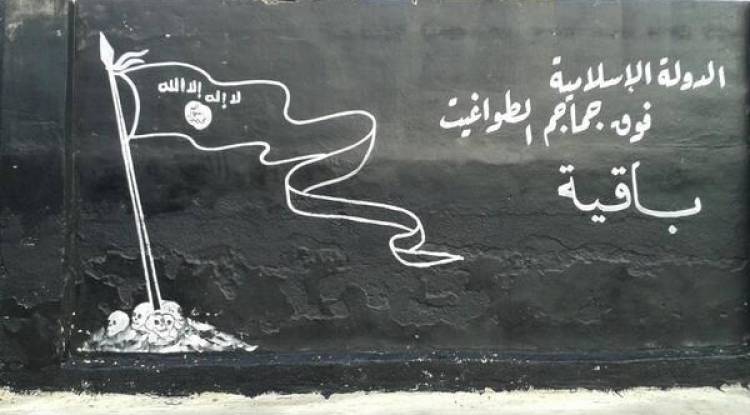 لا إله إلا الله
الله
رسول
محمد
الدولة الإسلامية
فوق جماجم الطواغيت
باقية